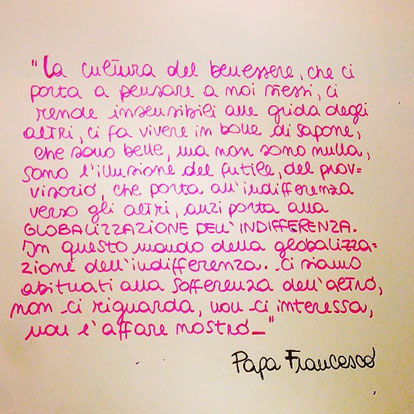 "La cultura del benessere, che ci
porta a pensare a noi stessi, ci
rende insensibili alle grida degli
altri, ci fa vivere in bolle di sapone,
che sono belle, ma non sono nulla,
sono l'illusione del futile, del prov-
visorio, che porta all'indifferenza
verso gli altri, anzi porta alla
GLOBALIZZAZIONE DELL'INDIFFERENZA.
In questo mondo della globalizza-
zione dell'indifferenza. Ci siamo
abituati alla sofferenza dell'altro,
non ci riguarda, non ci interessa,
non è affare nostro_"
Papa Francesco